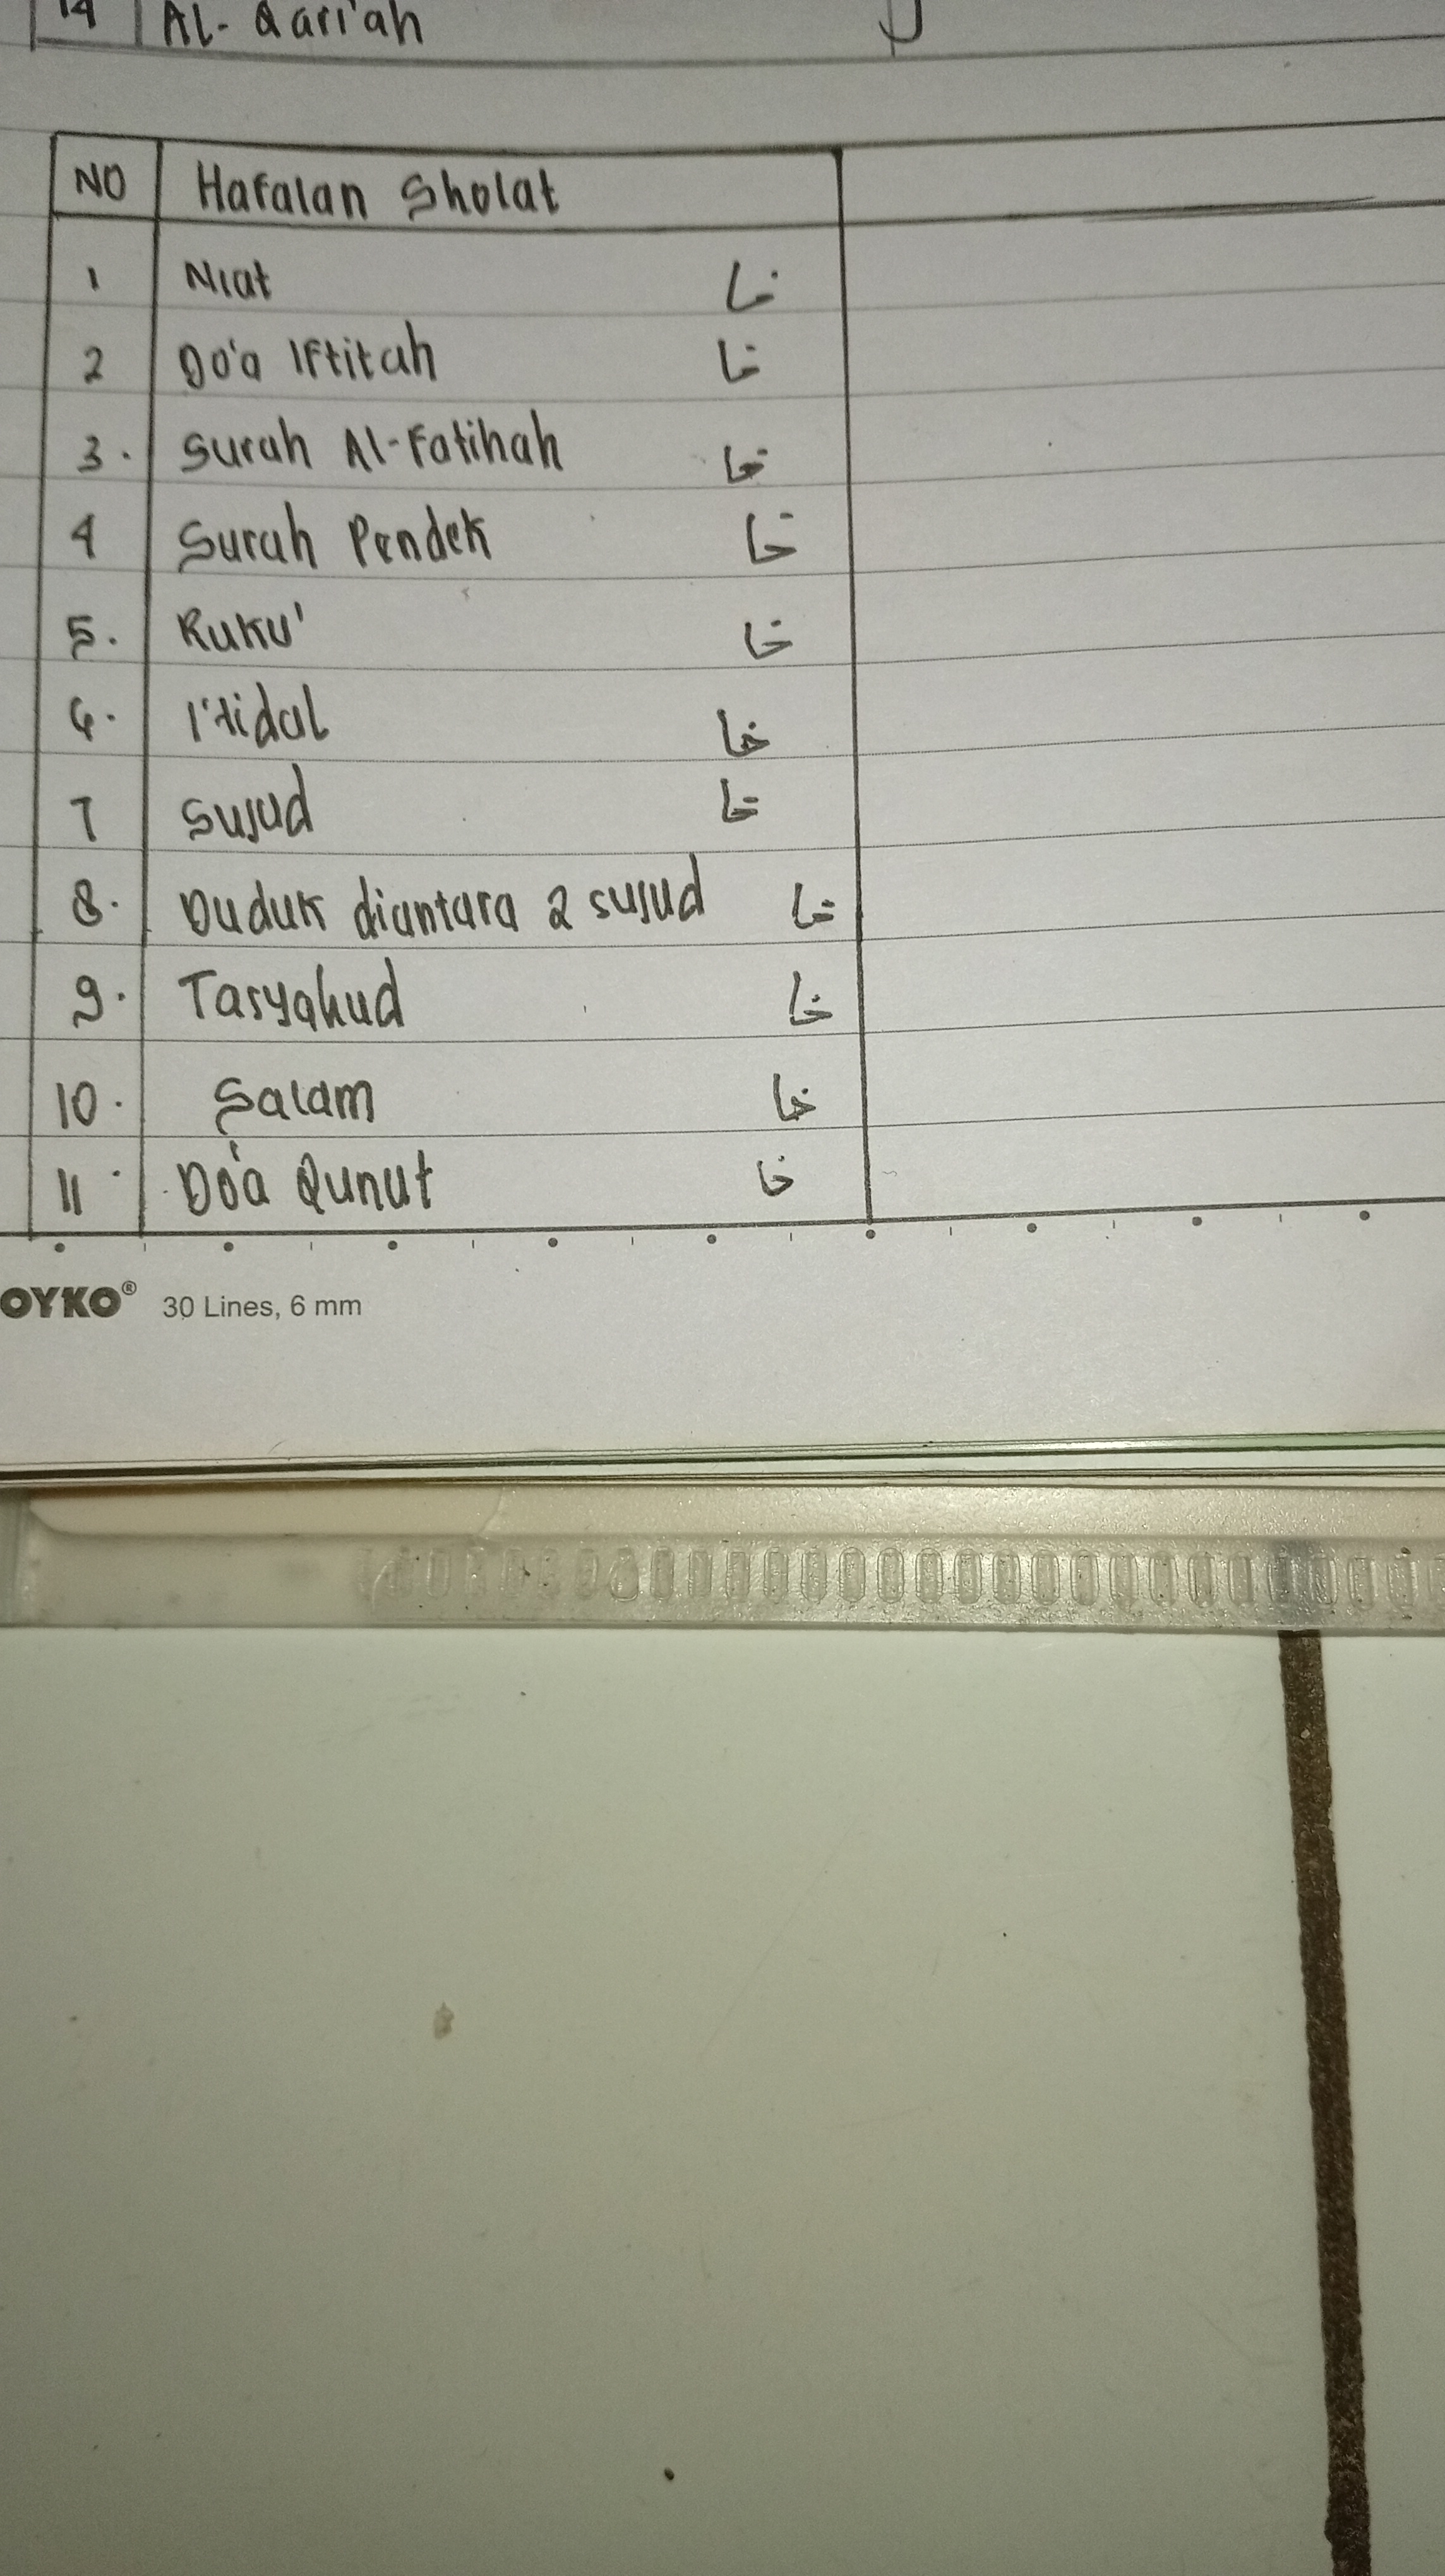 14 Al-Qari'ah
NO Hafalan Sholat
1 Niat
2 Do'a Iftitah
3. Surah Al-Fatihah
4 Surah Pendek
5. Ruku'
6. I'tidal
7 Sujud
8. Duduk diantara 2 sujud
9. Tasyahud
10. Salam
11. Do'a Qunut
OYKO® 30 Lines, 6 mm